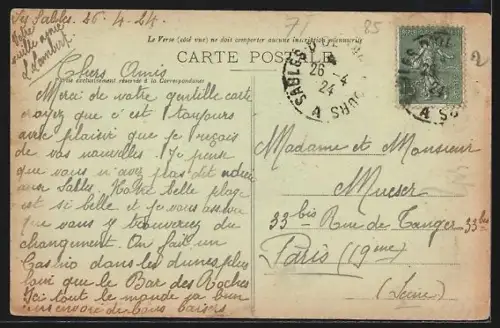 Les Sables. 26.4.24.
Le Verso (côté vue) ne doit comporter aucune inscription manuscrite
CARTE POSTALE
Partie exclusivement réservée à la Correspondance
Chers Amis
Merci de votre gentille carte
croyez que c'est toujours
avec plaisir que je reçois
de vos nouvelles. Je pense
que vous n'avez plus dit adieu
aux Sables. Notre belle plage
est si belle et je vous assure
que vous y trouverez du
changement. On fait un
Casino dans les dunes plus
loin que le Bar des Roches
Ici tout le monde va bien
encore de bons baisers
Votre
vieille amie
71
85
2
SABLES D'OL
26-4
24
TOURS
A
Madame et Monsieur
Mueser
33 bis Rue de Tanger 33 bis
Paris (19eme)
(Seine)